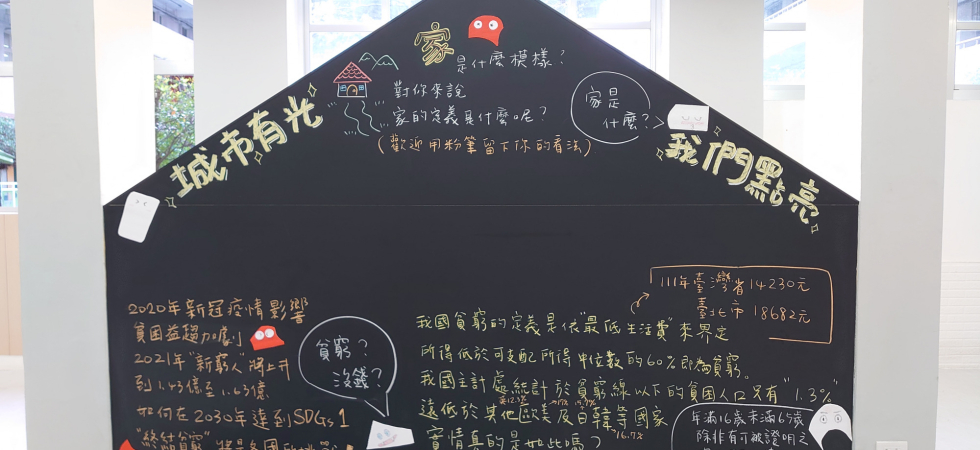 家 是什麼模樣？
對你來說
家的定義是什麼呢？
（歡迎用粉筆留下你的看法）
家是
什麼？
城市有光
我們點亮
111年臺灣省14230元
臺北市 18682元
2020年新冠疫情影響
貧困益趨加劇！
2021年"新窮人"將上升
到1.43億至1.63億
如何在2030年達到SDGs 1
"終結貧窮"
貧窮？
沒錢？
我國貧窮的定義是依"最低生活費"來界定
所得低於可支配所得中位數的60%即為貧窮。
我國主計處統計於貧窮線以下的貧困人口只有"1.3%"
遠低於其他歐美及日韓等國家
16.7%
實情真的是如此嗎？
年滿16歲未滿65歲
除非有可被證明之